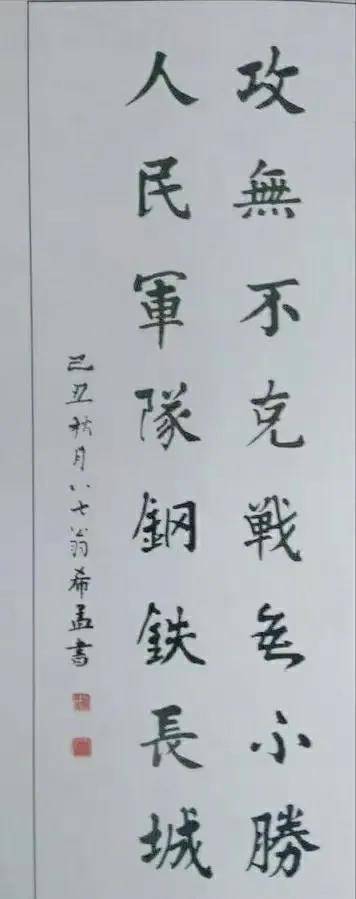 攻無不克戦无不勝
人民軍隊鋼鉄長城
己丑秋月八七翁希孟書